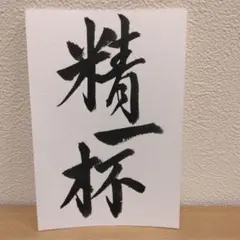 精一杯